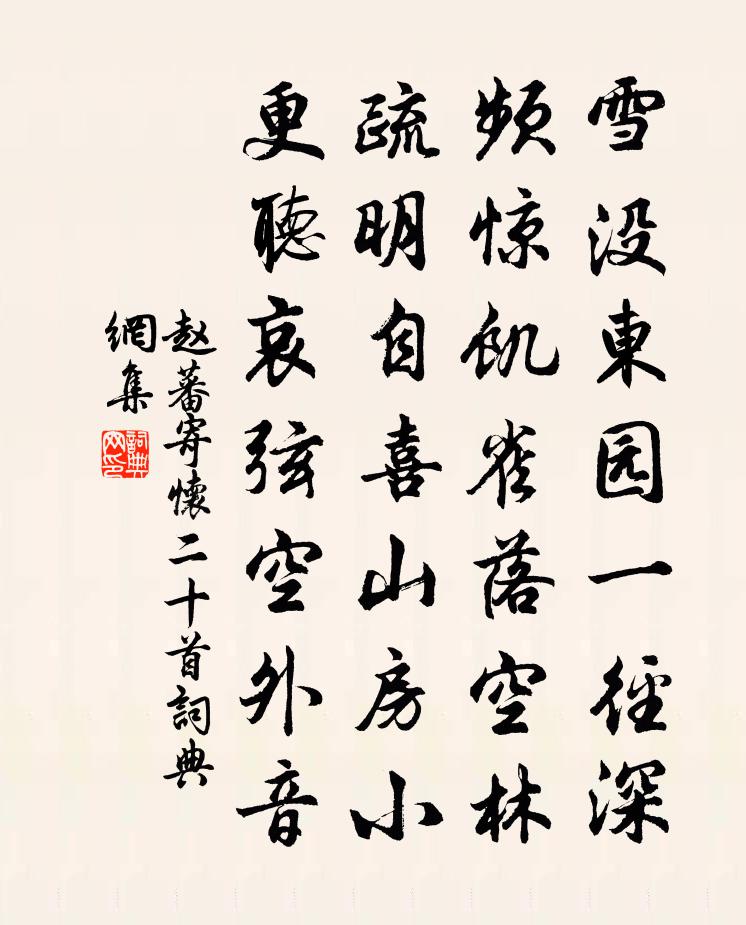 雪没東园一径深
频惊飢雀落空林
疏明自喜山房小
更聽哀弦空外音
赵蕃寄懷二十首詞典
網集
詞典网印